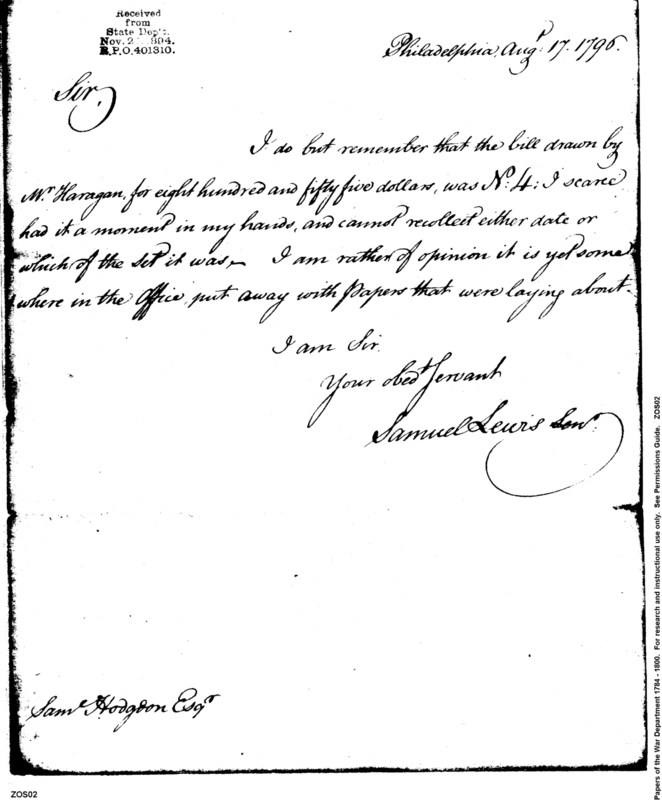 Received
from
State Dep't.
Nov. 2 1894.
R.P.O. 401310.
Philadelphia, Augt. 17. 1796.
Sir,
I do but remember that the bill drawn by
Mr. Haragan, for eight hundred and fifty five dollars, was No. 4: I scarce
had it a moment in my hands, and cannot recollect either date or
which of the set it was, I am rather of opinion it is yet some
where in the Office, put away with Papers that were laying about.
I am Sir
Your obedt. Servant
Samuel Lewis Senr.
Saml. Hodgdon Esqr
ZOS02
Papers of the War Department 1784 - 1800. For research and instructional use only. See Permissions Guide. ZOS02